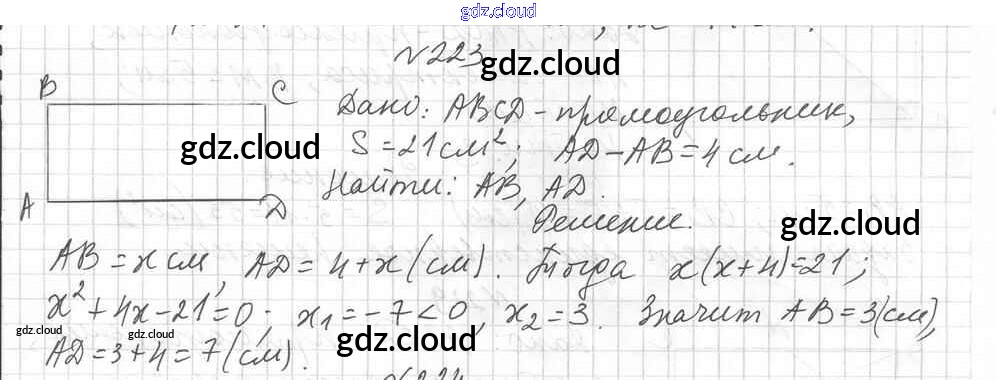 gdz.cloud
N 223
gdz.cloud
B C
Дано: ABCD - прямоугольник,
gdz.cloud
S = 21 см²; AD - AB = 4 см.
Найти: AB, AD.
A D
Решение.
gdz.cloud
AB = x см, AD = 4 + x (см). Тогда x(x+4)=21;
x² + 4x - 21 = 0; x₁ = -7 < 0, x₂ = 3. Значит AB = 3(см),
gdz.cloud gdz.cloud gdz.cloud
AD = 3 + 4 = 7 (см).
N 224